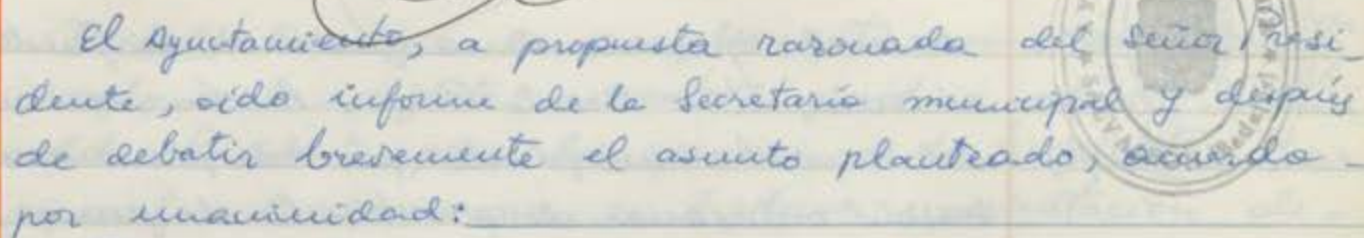 El Ayuntamiento, a propuesta razonada del Señor Presi-
dente, oído informe de la Secretaría municipal y después
de debatir brevemente el asunto planteado, acuerda -
por unanimidad: